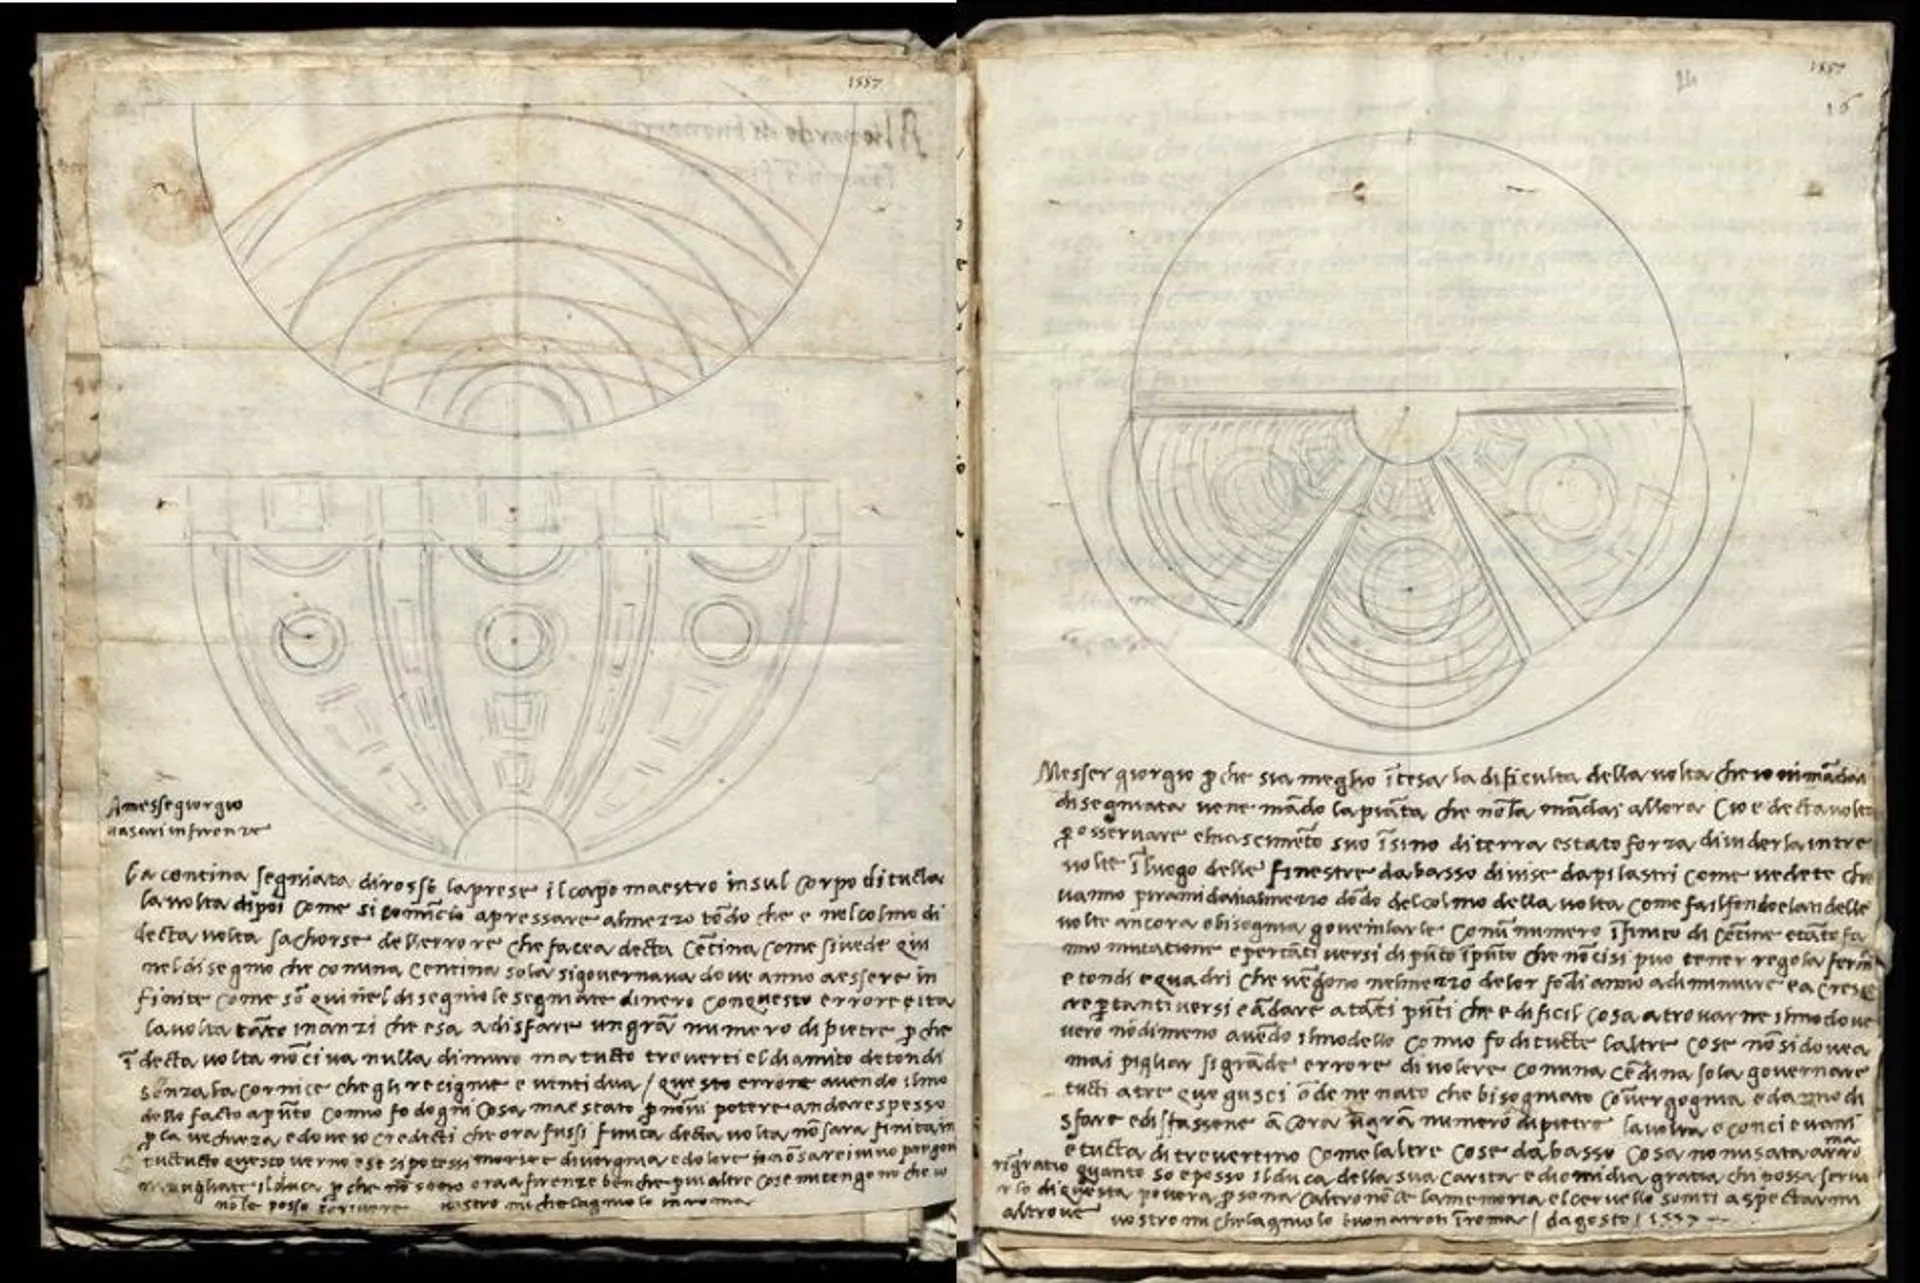 1557
Amesse giorgio
vasari in firenze
la centina segniata di rosso la prese il capo maestro in sul corpo di tucta
la volta di poi come si cominciò apressare al mezzo tōdo che e nel colmo di
decta volta sachorse dell errore che facea decta cētina come si vede qui
nel disegnio che con una centina sola si governava dove anno a essere in
finite come sō qui nel disegnio le segniate di nero con questo errore e ita
la volta tāto inanzi che s a a disfare un grā numero di pietre p che
ī decta volta nō ci va nulla di muro ma tucto treverti e l diamitro de tondi
senza la cornice che gli recignie e venti dua / questo errore avendo il mo
dello facto apūto como fo d ogni cosa m e stato p nō vi potere andare spesso
p la vechieza e dove io credecti che ora fussi finita decta volta nō sara finita ī
tucto questo verno e se si potessi morire di vergognia e dolore io nō sarei vivo
il duca p che nō sono ora a firenze benche piu altre cose mi tengono che io
nō le posso scrivere vostro michelagniolo in roma
1557
16
Messer giorgio p che sia meglio ītesa la dificulta della volta che io vi mādai
disegniata ve ne mādo la piāta che nō la mādai allora cioe decta volta
p osservare el nascimēto suo īsino di terra e stato forza dividerla in tre
volte ī luogo delle finestre da basso divise da pilastri come vedete che
vanno piramidati al mezzo dēdo del colmo della volta come fa il fondo e lati delle
volte ancora e bisognia governarle con ū numero īfinito di cētine e tāto fa
nno mutatione e p tāti versi di pūto ī pūto che nō ci si puo tener regola ferma
e tondi e quadri che vēgono nel mezzo de lor fōdi anno a diminuire e a cresc
re p tanti versi e ādare a tāti pūti che e dificil cosa a trovare il modo
vero nōdimeno avēdo il modello como fo di tucte l altre cose nō si dovea
mai pigliar si grāde errore di volere con una cētina sola governare
tucti a tre que gusci ōde ne nato che bisogniato cō vergognia e danno di
sfare e disfassene ācora ū grā numero di pietre la volta e conci e vani
e tucta di trevertino come l altre cose da basso cosa non usata a roma
rīgratio quanto so e posso il duca della sua carita e dio mi dia gratia ch i possa servi
rlo di questa povera p sona ch altro nō c e la memoria e l cervello son iti a spectarmi
altrove vostro michelagniolo buonarroti ī roma / d agosto / 1557